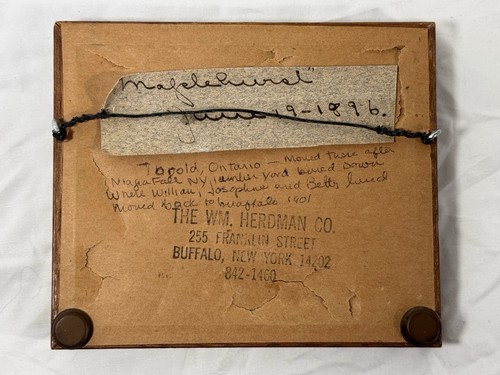 Maplehurst"
June 19-1896.
Torold, Ontario - Moved there after
Niagra Falls NY lumber yard burned down
Where William, Josephine and Betty lived
Moved back to Buffalo 1901
THE WM. HERDMAN CO.
255 FRANKLIN STREET
BUFFALO, NEW YORK 14202
842-1460